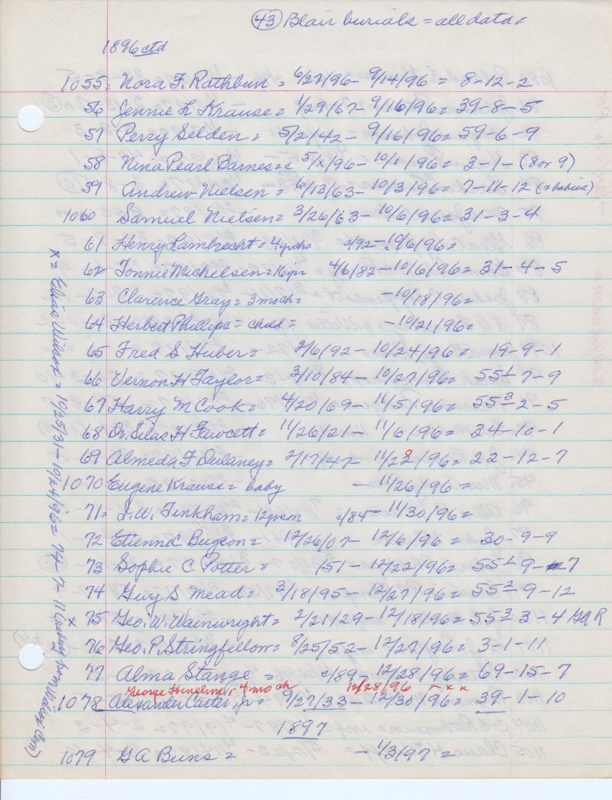 43 Blair burials = all data
1896 ctd
1055 = Nora F. Rathbun = 6/27/96 - 9/14/96 = 8-12-2
56 Jennie L Krause = 1/29/67 - 9/16/96 = 39-8-5
57 Perry Selden = 5/2/42 - 9/16/96 = 59-6-9
58 Nina Pearl Barnes = 5/x/96 - 10/1/96 = 3-1-(8 or 9)
59 Andrew Nielsen = 6/13/63 - 10/3/96 = 7-11-12 (2 babies)
1060 Samuel Nielsen = 3/26/63 - 10/6/96 = 31-3-4
61 Henry Lambrecht = 4 yrs 1/92 - 10/6/96 =
62 Tonnie Michelsen = 16 yr 4/6/82 - 10/6/96 = 31-4-5
63 Clarence Gray = 3 mo ch = - 10/18/96 =
64 Herbert Phillips = child = - 10/21/96 =
65 Fred S Huber = 2/6/92 - 10/24/96 = 19-9-1
66 Vernon H Taylor = 3/10/84 - 10/27/96 = 55½-7-9
67 Harry M Cook = 4/20/69 - 11/5/96 = 55³-2-5
68 Dr. Silas H Fawcett = 11/26/21 - 11/6/96 = 34-10-1
69 Almeda F Dulaney = 2/17/47 - 11/28/96 = 22-12-7
1070 Eugene Krause = baby - 11/26/96 =
71 = I. W. Tinkham = 12 yrs m /84 - 11/30/96 =
72 Etienne Bugeon = 12/26/07 - 12/6/96 = 30-9-9
73 Sophie C Potter = /51 - 12/22/96 = 55½-9-7
74 Guy S Mead = 3/18/95 - 12/27/96 = 55²-9-12
x 75 Geo. W. Wainwright = 2/21/29 - 12/18/96 = 55³ 3-4 GAR
76 Geo. P. Stringfellow = 8/25/52 - 12/27/96 = 3-1-11
77 Alma Stange = /89 - 12/28/96 = 69-15-7
George 4 mo ch 12/28/96 - xxx
1078 Alexander Carter, jr = 9/27/33 - 12/30/96 = 39-1-10
1897
1079 G A Buns = - 1/3/97 =
x = Eliza = 10/25/31 - 10/24/96 = 74-7-11